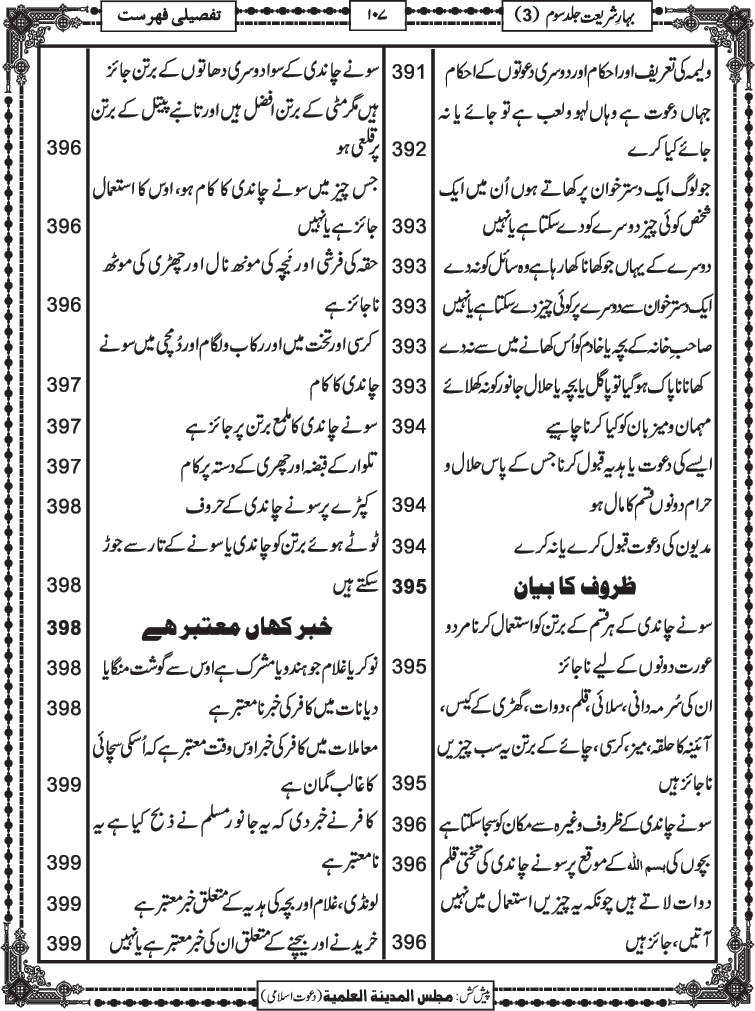 بہارِ شریعت جلد سوم (3)
۱۰۷
تفصیلی فہرست
ولیمہ کی تعریف اور احکام اور دوسری دعوتوں کے احکام 391
جہاں دعوت ہے وہاں لہو ولعب ہے تو جائے یا نہ
جائے کیا کرے 392
جو لوگ ایک دسترخوان پر کھاتے ہوں اُن میں ایک
شخص کوئی چیز دوسرے کو دے سکتا ہے یا نہیں 393
دوسرے کے یہاں جو کھانا کھا رہا ہے وہ سائل کو نہ دے 393
ایک دسترخوان سے دوسرے پر کوئی چیز دے سکتا ہے یا نہیں 393
صاحبِ خانہ کے بچہ یا خادم کو اُس کھانے میں سے نہ دے 393
کھانا ناپاک ہوگیا تو پاگل یا بچہ یا حلال جانور کو نہ کھلائے 393
مہمان ومیزبان کو کیا کرنا چاہیے 394
ایسے کی دعوت یا ہدیہ قبول کرنا جس کے پاس حلال و
حرام دونوں قسم کا مال ہو 394
مدیون کی دعوت قبول کرے یا نہ کرے 394
ظروف کا بیان 395
سونے چاندی کے ہر قسم کے برتن کو استعمال کرنا مرد و
عورت دونوں کے لیے ناجائز 395
ان کی سُرمہ دانی، سلائی، قلم، دوات، گھڑی کے کیس،
آئینہ کا حلقہ، میز، کرسی، چائے کے برتن یہ سب چیزیں
ناجائز ہیں 395
سونے چاندی کے ظروف وغیرہ سے مکان کو سجا سکتا ہے 396
بچوں کی بسم اللہ کے موقع پر سونے چاندی کی تختی قلم 396
دوات لاتے ہیں چونکہ یہ چیزیں استعمال میں نہیں
آتیں، جائز ہیں 396
سونے چاندی کے سوا دوسری دھاتوں کے برتن جائز
ہیں مگر مٹی کے برتن افضل ہیں اور تانبے پیتل کے برتن
پر قلعی ہو 396
جس چیز میں سونے چاندی کا کام ہو، اوس کا استعمال
جائز ہے یا نہیں 396
حقہ کی فرشی اور نَیچہ کی مونھ نال اور چھڑی کی موٹھ
ناجائز ہے 396
کرسی اور تخت میں اور رکاب ولگام اور دُمچی میں سونے
چاندی کا کام 397
سونے چاندی کا ملمع برتن پر جائز ہے 397
تلوار کے قبضہ اور چھری کے دستہ پر کام 397
کپڑے پر سونے چاندی کے حروف 398
ٹوٹے ہوئے برتن کو چاندی یا سونے کے تار سے جوڑ
سکتے ہیں 398
خبر کہاں معتبر ہے 398
نوکر یا غلام جو ہندو یا مشرک ہے اوس سے گوشت منگایا 398
دیانات میں کافر کی خبر نامعتبر ہے 398
معاملات میں کافر کی خبر اوس وقت معتبر ہے کہ اُسکی سچائی
کا غالب گمان ہے 399
کافر نے خبر دی کہ یہ جانور مسلم نے ذبح کیا ہے یہ
نامعتبر ہے 399
لونڈی، غلام اور بچہ کی ہدیہ کے متعلق خبر معتبر ہے 399
خریدنے اور بیچنے کے متعلق ان کی خبر معتبر ہے یا نہیں 399
پیش کش: مجلس المدینۃ العلمیۃ (دعوت اسلامی)